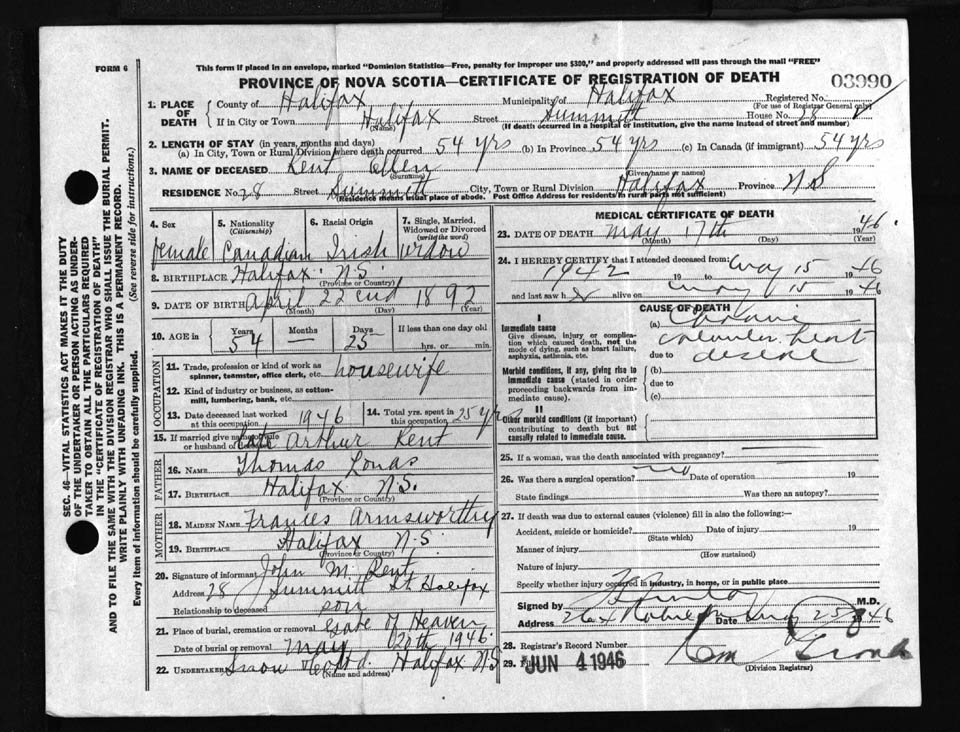 This form if placed in an envelope, marked "Dominion Statistics—Free, penalty for improper use $300," and properly addressed will pass through the mail "FREE"
FORM 6
PROVINCE OF NOVA SCOTIA—CERTIFICATE OF REGISTRATION OF DEATH
03990
1. PLACE OF DEATH
County of Halifax Municipality of Halifax Registered No.
(For use of Registrar General only)
If in City or Town Halifax Street Summitt House No. 28
(Name) (If death occurred in a hospital or institution, give the name instead of street and number)
2. LENGTH OF STAY (in years, months and days)
(a) In City, Town or Rural Division where death occurred 54 yrs (b) In Province 54 yrs (c) In Canada (if immigrant) 54 yrs
3. NAME OF DECEASED Kent Ellen
(Surname) (Given name or names)
RESIDENCE No. 28 Street Summitt City, Town or Rural Division Halifax Province N S
(Residence means usual place of abode. Post Office Address for residents in rural parts not sufficient)
4. Sex female
5. Nationality (Citizenship) Canadian
6. Racial Origin Irish
7. Single, Married, Widowed or Divorced (write the word) widow
8. BIRTHPLACE Halifax N.S.
(Province or Country)
9. DATE OF BIRTH April 22 cnd 1892
(Month) (Day) (Year)
10. AGE in Years 54 Months Days 25 If less than one day old hrs. or min.
OCCUPATION
11. Trade, profession or kind of work as spinner, teamster, office clerk, etc. housewife
12. Kind of industry or business, as cotton-mill, lumbering, bank, etc.
13. Date deceased last worked at this occupation 1946
14. Total yrs. spent in this occupation 25 yrs
15. If married give name of wife or husband of Arthur Kent
FATHER
16. NAME Thomas Lonas
17. BIRTHPLACE Halifax N.S.
(Province or Country)
MOTHER
18. MAIDEN NAME Frances Armsworthy
19. BIRTHPLACE Halifax N.S
(Province or Country)
20. Signature of informant John M. Kent
Address 28 Summitt St Halifax
Relationship to deceased son
21. Place of burial, cremation or removal Gate of Heaven
Date of burial or removal May 20th 1946.
22. UNDERTAKER Snow Halifax N S
(Name and address)
MEDICAL CERTIFICATE OF DEATH
23. DATE OF DEATH May 17th 1946.
(Month) (Day) (Year)
24. I HEREBY CERTIFY that I attended deceased from:
1942 19 to May 15 1946
and last saw h alive on May 15 1946
CAUSE OF DEATH
I
Immediate cause
Give disease, injury or complication which caused death, not the mode of dying, such as heart failure, asphyxia, asthenia, etc.
(a) Chronic
heart
due to disease
Morbid conditions, if any, giving rise to immediate cause (stated in order proceeding backwards from immediate cause).
(b)
due to
(c)
II
Other morbid conditions (if important) contributing to death but not causally related to immediate cause.
25. If a woman, was the death associated with pregnancy?
26. Was there a surgical operation? no Date of operation 19
State findings Was there an autopsy?
27. If death was due to external causes (violence) fill in also the following:—
Accident, suicide or homicide? Date of injury 19
(State which)
Manner of injury
(How sustained)
Nature of injury
Specify whether injury occurred in industry, in home, or in public place
Signed by M.D.
Address Date 25 46
28. Registrar's Record Number
29. Filed JUN 4 1946
(Division Registrar)
SEC. 46—VITAL STATISTICS ACT MAKES IT THE DUTY
OF THE UNDERTAKER OR PERSON ACTING AS UNDERTAKER TO OBTAIN ALL THE PARTICULARS REQUIRED
IN THE "CERTIFICATE OF REGISTRATION OF DEATH"
AND TO FILE THE SAME WITH THE DIVISION REGISTRAR WHO SHALL ISSUE THE BURIAL PERMIT.
WRITE PLAINLY WITH UNFADING INK. THIS IS A PERMANENT RECORD.
Every item of information should be carefully supplied. (See reverse side for instructions.)